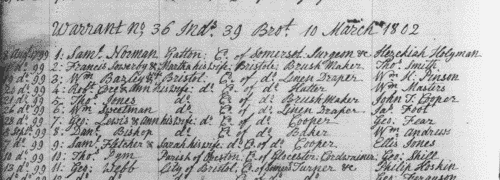 Warrant No. 36 Indr. 39 Brot. 10 March 1802
1: Saml. Norman Yatton Co. of Somerset Surgeon & Hezekiah Holyman
2: Francis & Martha his wife Bristol: Brush Maker Thos. Smith
3: Wm. Bristol Co. of do. Linen Draper Wm. K. Pinson
4: Robt. & Ann his wife do. Co. of do. Hatter Wm. Masters
5: Thos. Jones do. C. of do. Brush Maker John T. Cooper
6: Wm. Sweetman do. C. of do. Linen Draper Jas. Foot
7: Geo: Lewis & Ann his wife do. C. of do. Cooper Geo: Fear
8: Danl. Bishop do. C. of do. Baker Wm. Andrews
7 do. 99 9: Saml. Fletcher & Sarah his wife do. C. of do. Cooper Ellis Jones
10 do. 99 10: Thos. Pym Parish of Co. of Glocester Cordwainer Geo: Shill
13 do. 99 11: Geo: Webb City of Bristol Turner & Philip Hoskin
Geo: Ferguson